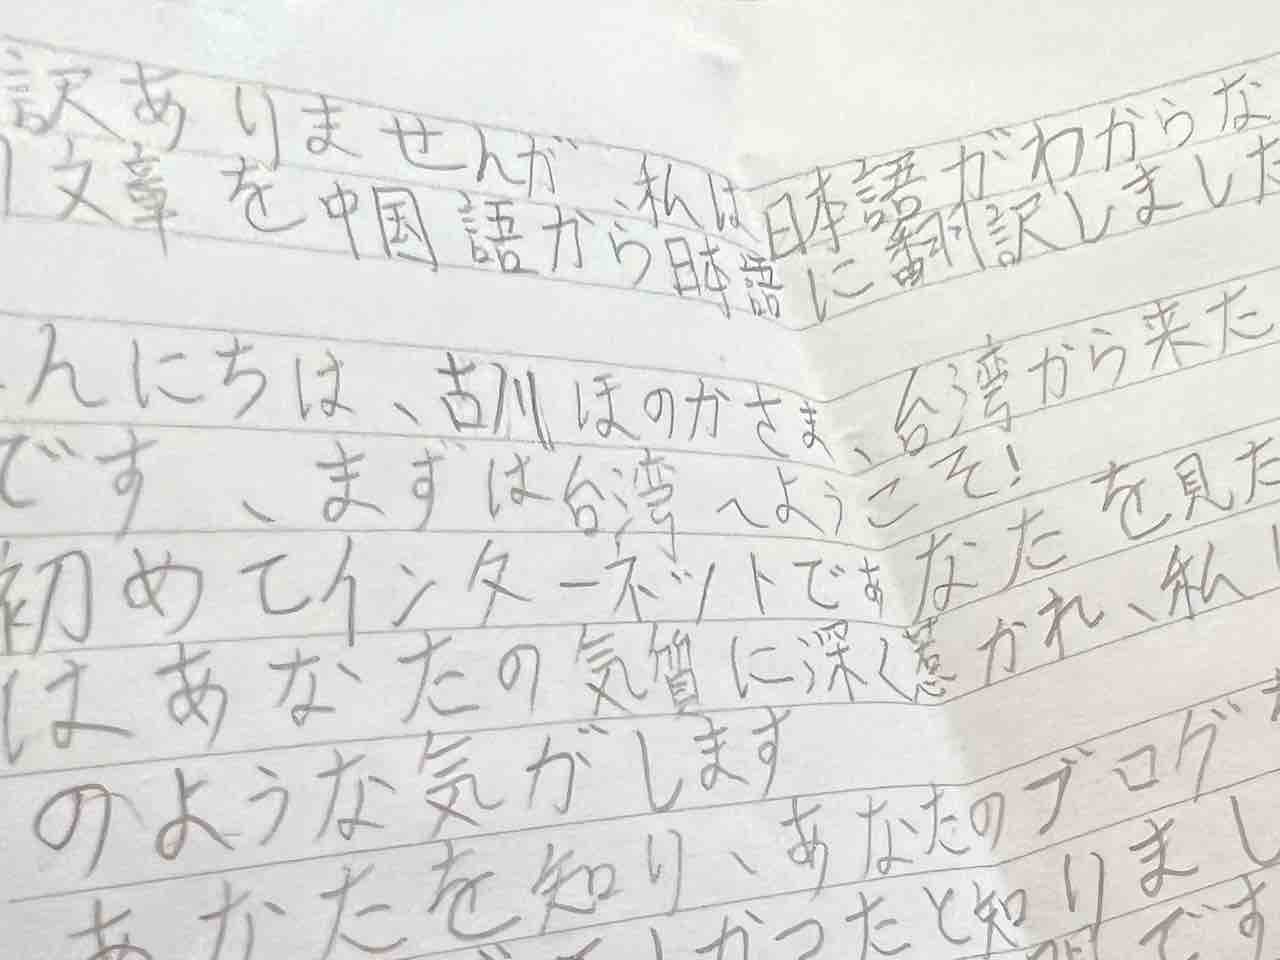 訳ありませんが、私は日本語がわからな
文章を中国語から日本語に翻訳しました
んにちは、古川ほのかさま、台湾から来た
です、まずは台湾へようこそ!
初めてインターネットであなたを見た
はあなたの気質に深く惹かれ、私
のような気がします
あなたを知り、あなたのブログ
あなた しかったと知りまし
です